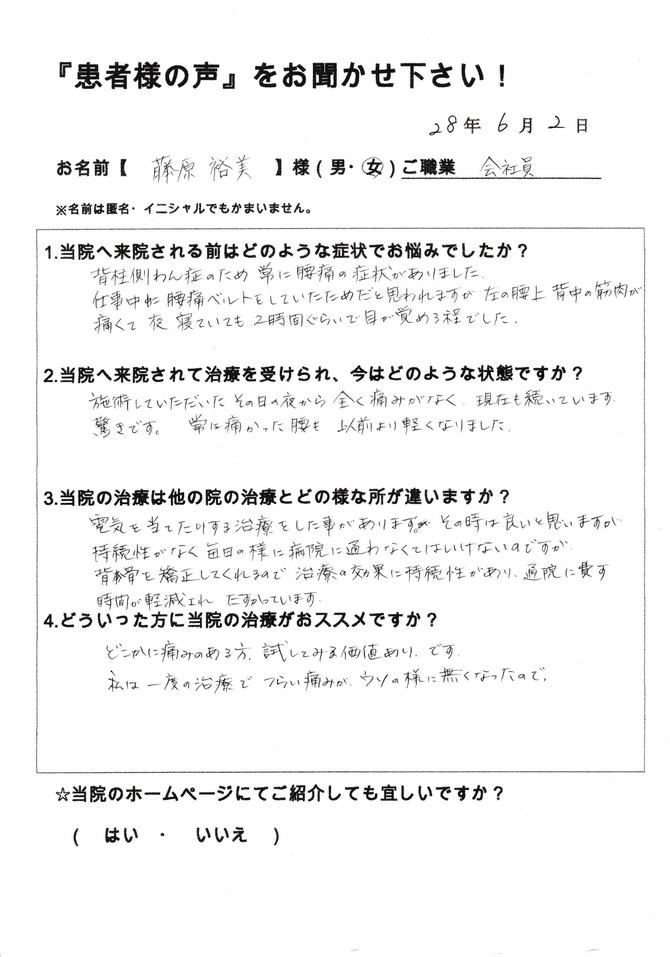 『患者様の声』をお聞かせ下さい！
28年 6月 2日
お名前【 藤原 裕美 】様（男・女）ご職業 会社員
※名前は匿名・イニシャルでもかまいません。
1.当院へ来院される前はどのような症状でお悩みでしたか？
背柱側わん症のため 常に腰痛の症状がありました.
仕事中に腰痛ベルトをしていたためだと思われますが 左の腰上 背中の筋肉が
痛くて 夜 寝ていても 2時間ぐらいで目が覚める程でした.
2.当院へ来院されて治療を受けられ、今はどのような状態ですか？
施術していただいた その日の夜から 全く痛みがなく. 現在も続いています.
驚きです。 常に痛かった腰も 以前より軽くなりました.
3.当院の治療は他の院の治療とどの様な所が違いますか？
電気を当てたりする治療をした事がありますが その時は良いと思いますが
持続性がなく 毎日の様に病院に通わなくてはいけないのですが
背骨を矯正してくれるので 治療の効果に持続性があり. 通院に費す
時間が軽減され たすかっています.
4.どういった方に当院の治療がおススメですか？
どこかに痛みのある方. 試してみる価値あり. です.
私は 一度の治療で つらい痛みが. ウソの様に無くなったので.
☆当院のホームページにてご紹介しても宜しいですか？
（ はい ・ いいえ ）